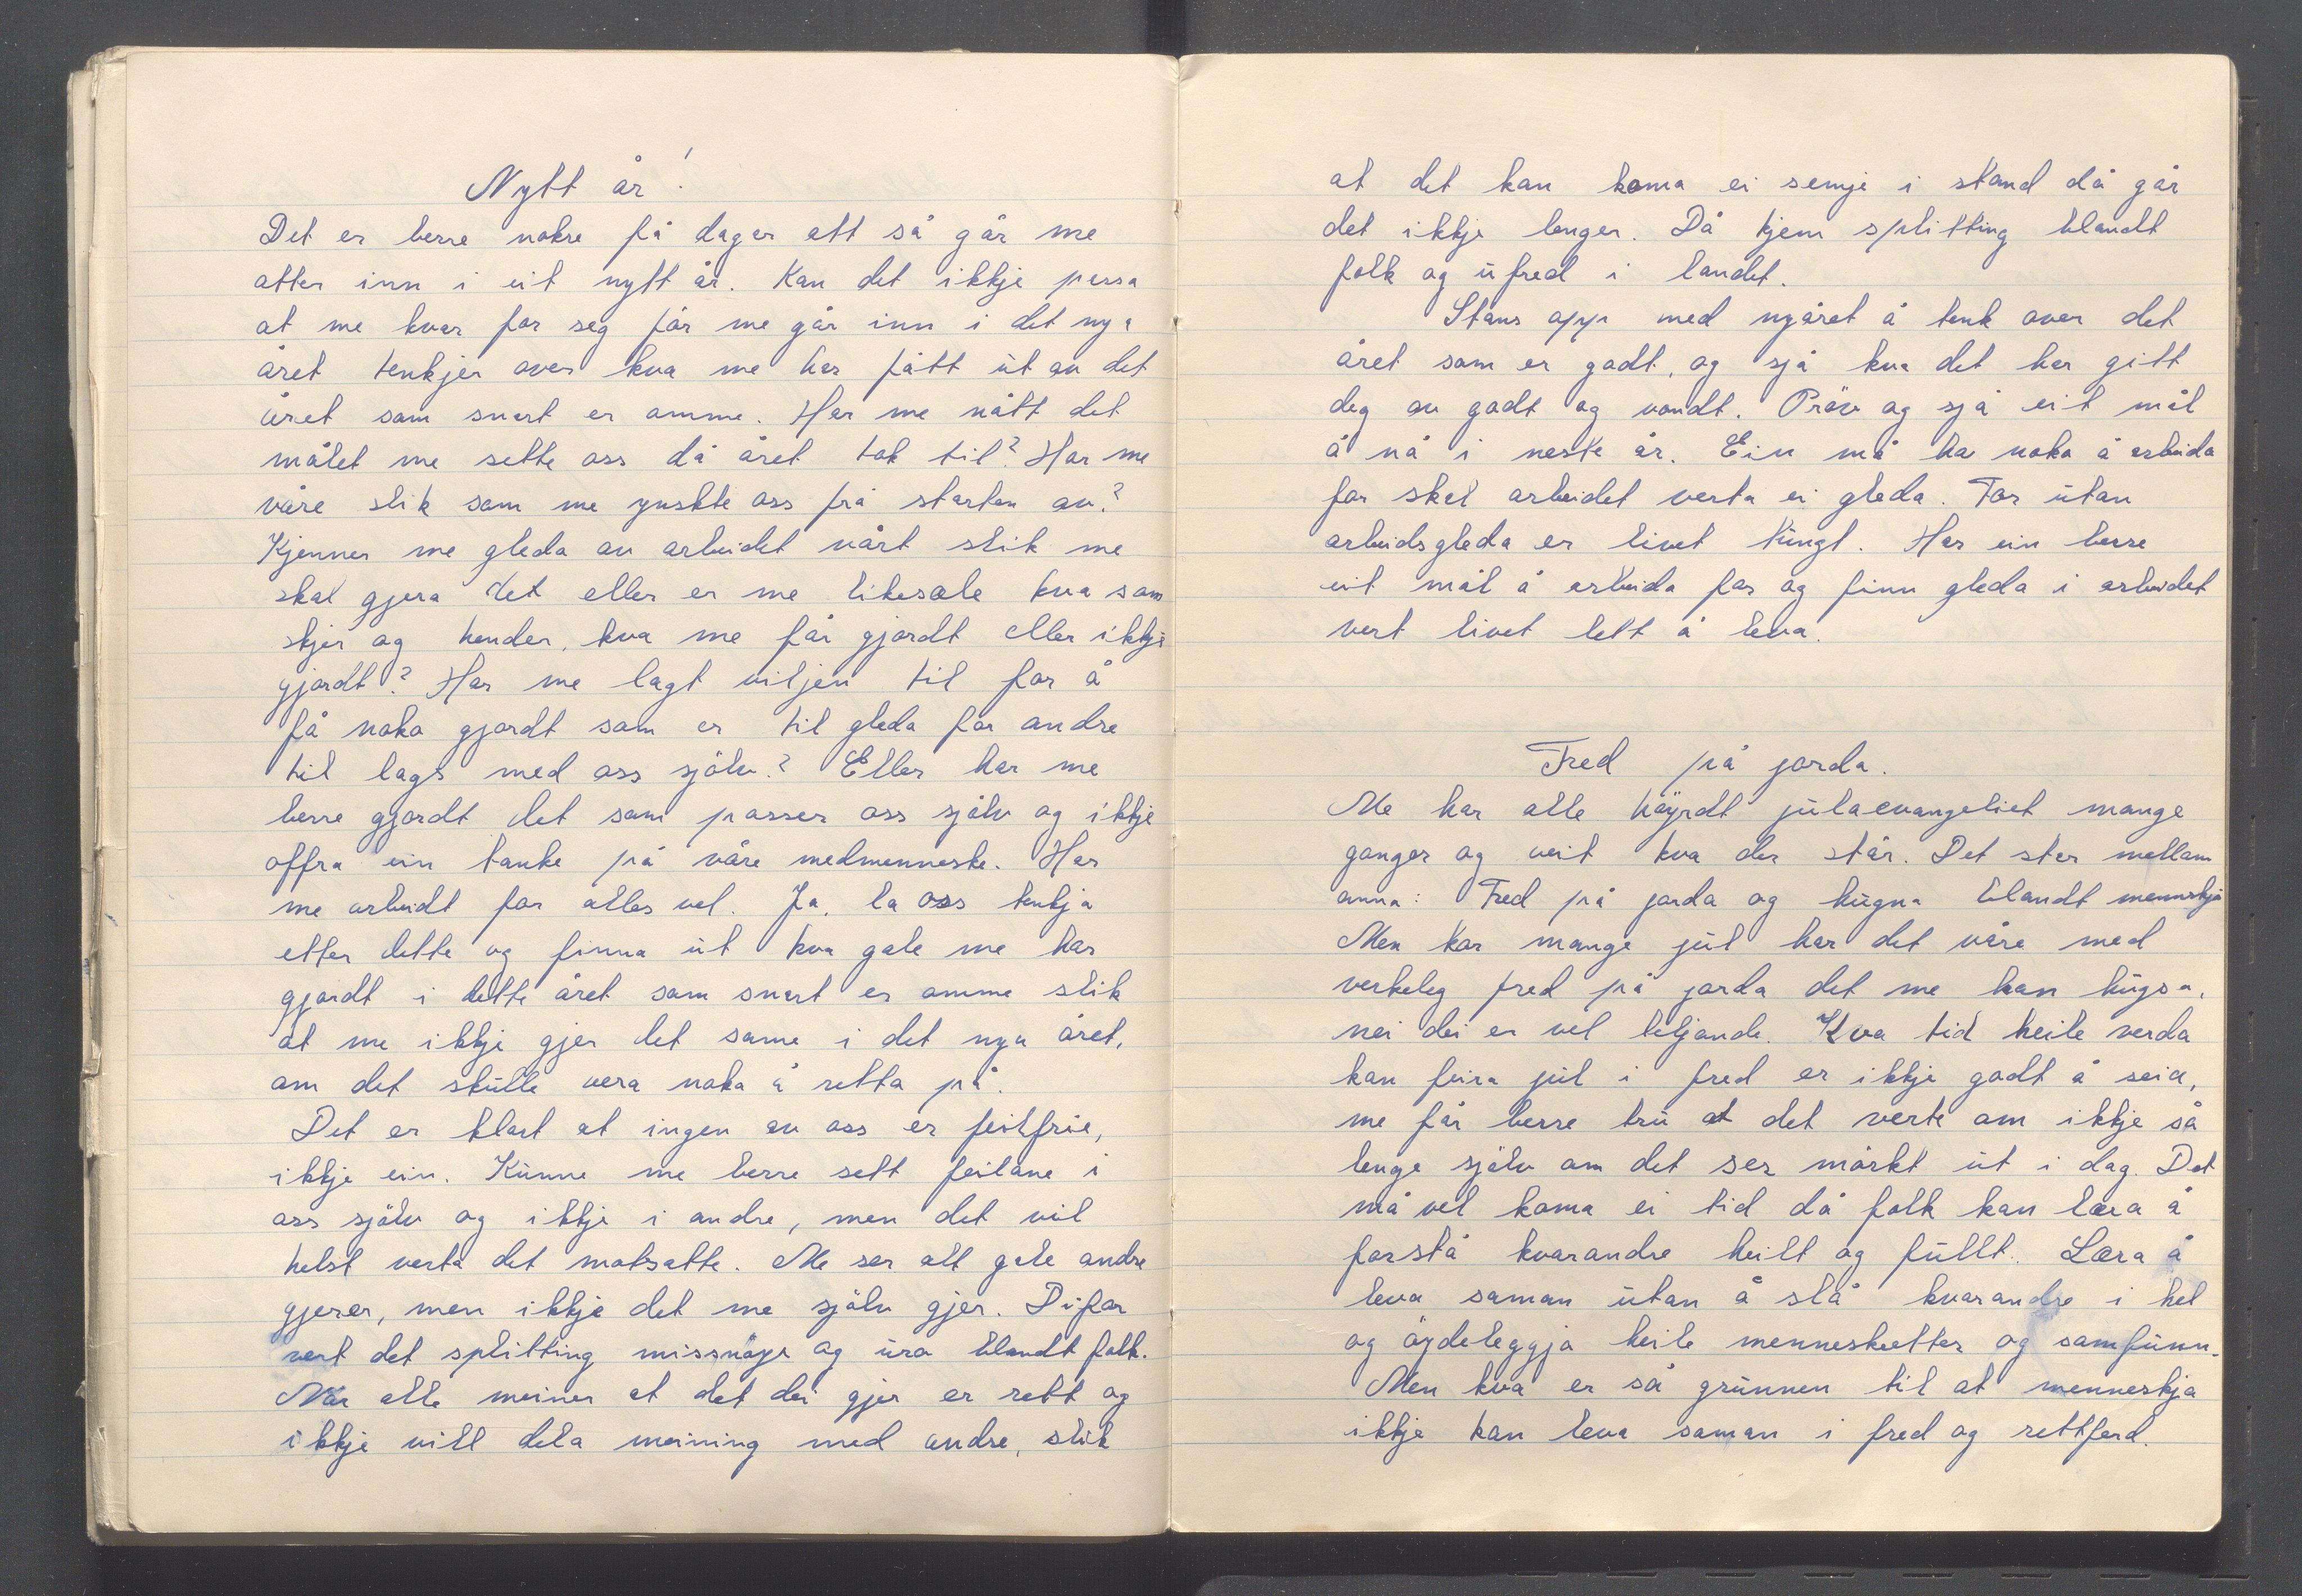 Nytt år!
Det er berre nokre få dagar att så går me
atter inn i eit nytt år. Kan det ikkje passa
at me kvar for seg får me går inn i det nya
året tenkjer over kva me har fått ut av det
året som snart er omme. Har me nått det
målet me sette oss då året tok til? Har me
våre slik som me ynskte oss frå starten av?
Kjenner me gleda av arbeidet vårt slik me
skal gjera det eller er me likesæle kva som
skjer og hender, kva me får gjordt eller ikkje
gjordt? Har me lagt viljen til for å
få noko gjordt som er til gleda for andre
til lags med oss sjölv? Eller har me
berre gjordt det som passer oss sjölv og ikkje
offra ein tanke på våre medmenneske. Har
me arbeidt for alles vel. Ja, la oss tenkja
etter dette og finna ut kva gale me har
gjordt i dette året som snart er omme slik
at me ikkje gjer det same i det nya året,
om det skulle vera noko å retta på.
Det er klart at ingen av oss er feilfrie,
ikkje ein. Kunne me berre sett feilane i
oss sjölv og ikkje i andre, men det vil
helst verta det motsatte. Me ser alt gale andre
gjerer, men ikkje det me sjölv gjer. Difor
vert det splitting missnöye og uro blandt folk.
Når alle meiner at det dei gjer er rett og
ikkje vill dela meining med andre, slik
at det kan koma ei semje i stand då går
det ikkje lenger. Då kjem splitting blandt
folk og ufred i landet.
Stans opp med nyåret å tenk over det
året som er godt, og sjå kva det har gitt
deg av godt og vondt. Pröv og sjå eit mål
å nå i neste år. Ein må ha noko å arbeida
for skal arbeidet verta ei gleda. For utan
arbeidsgleda er livet tungt. Har ein berre
eit mål å arbeida for og finn gleda i arbeidet
vert livet lett å leva.
Fred på jorda.
Me har alle höyrdt julaevangeliet mange
gonger og veit kva der står. Det står mellom
anna: Fred på jorda og hugna blandt menneskja
Men kor mange jul har det våre med
verkeleg fred på jorda det me kan hugsa,
nei dei er vel teljande. Kva tid heile verda
kan feira jul i fred er ikkje godt å seia,
me får berre tru at det verte om ikkje så
lenge sjölv om det ser mörkt ut i dag. Det
må vel koma ei tid då folk kan læra å
forstå kvarandre heilt og fullt. Læra å
leva saman utan å slå kvarandre i hel
og öydeleggja heile menneskeætter og samfunn.
Men kva er så grunnen til at menneskja
ikkje kan leva saman i fred og rettferd.